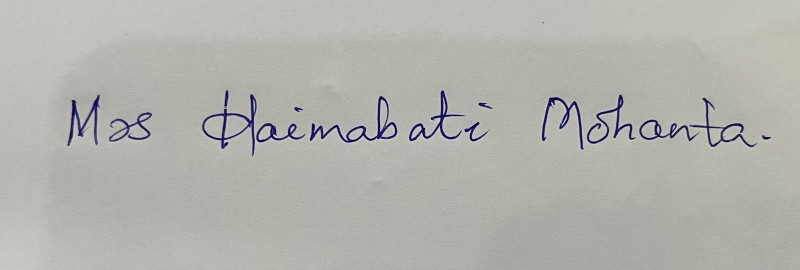 Mrs Haimabati Mohanta.